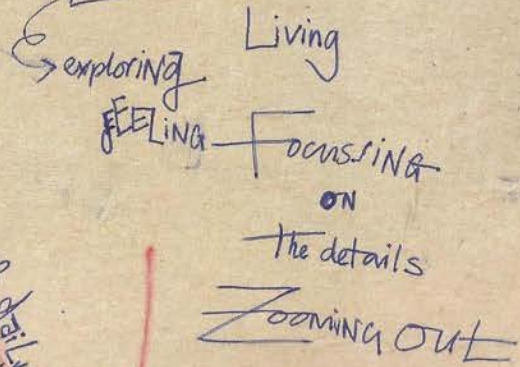 Living
exploriNg
fEELiNG — FocussiNG
ON
The details
ZoomiNG OUT